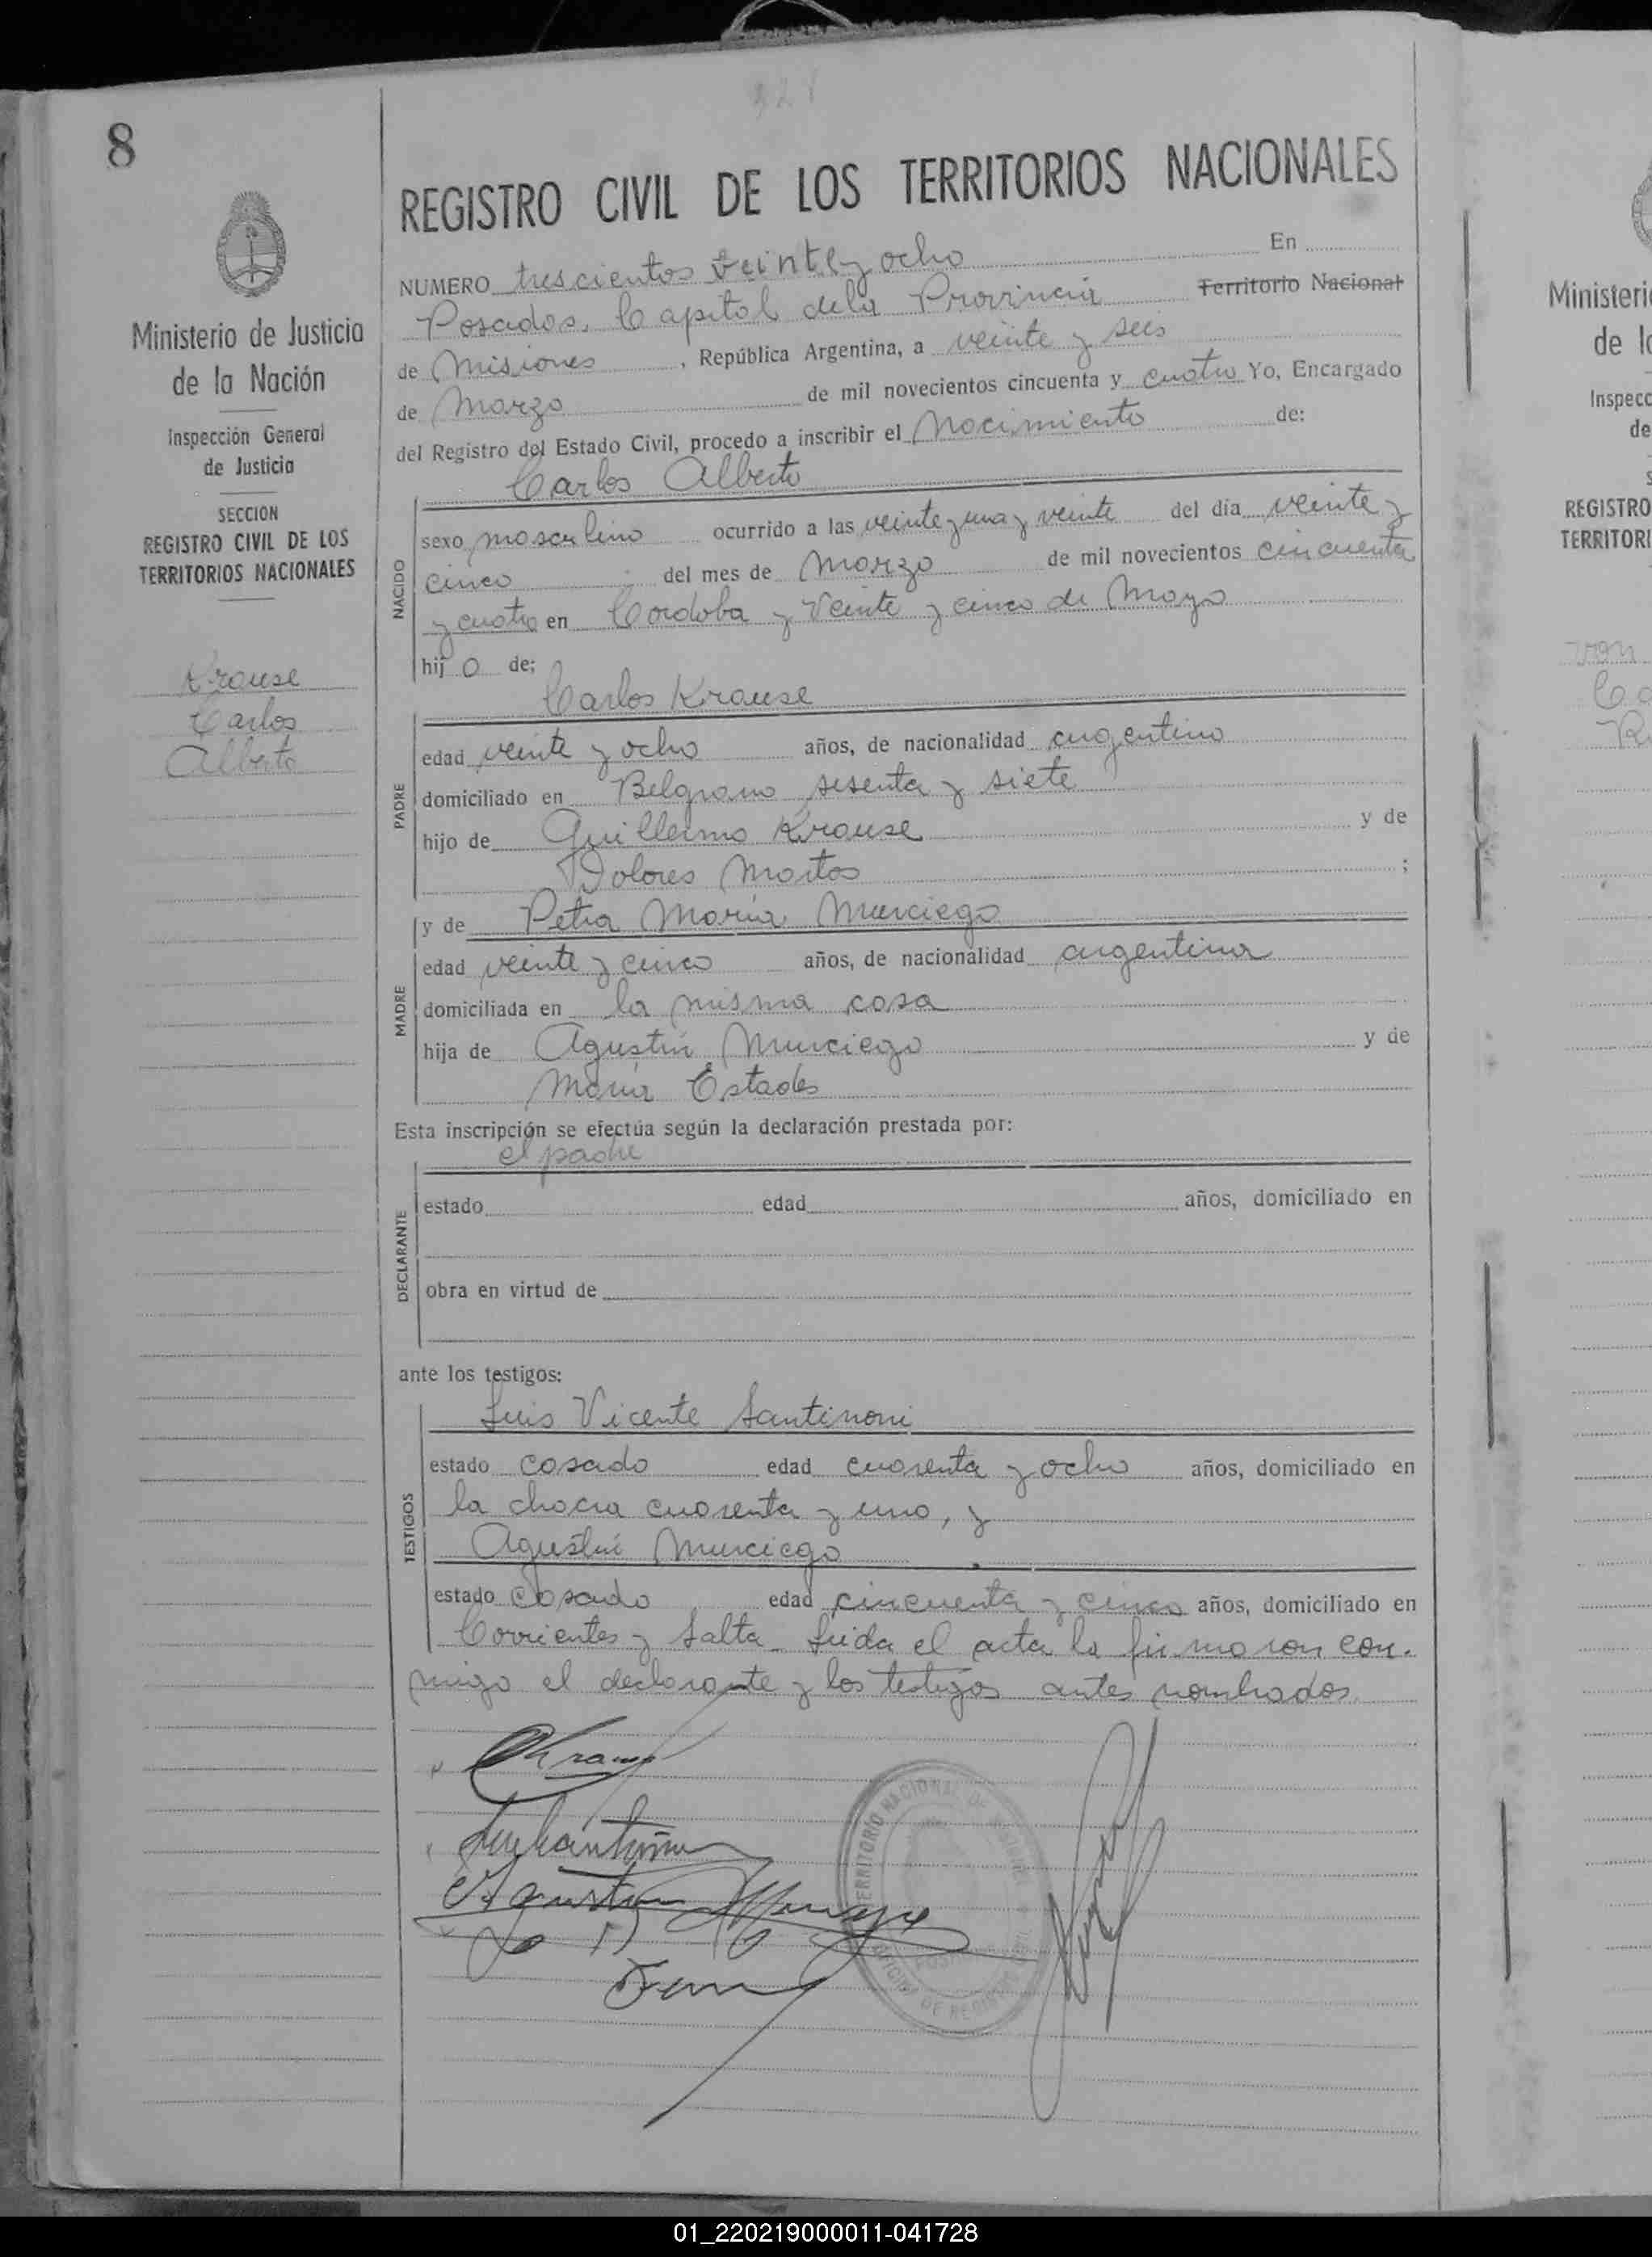 328
8
REGISTRO CIVIL DE LOS TERRITORIOS NACIONALES
Ministerio de Justicia
de la Nación
Inspección General
de Justicia
SECCION
REGISTRO CIVIL DE LOS
TERRITORIOS NACIONALES
Krause
Carlos
Alberto
NUMERO trescientos veinte y ocho En
Posadas, Capital de la Provincia Territorio Nacional
de Misiones, República Argentina, a veinte y seis
de Marzo de mil novecientos cincuenta y cuatro Yo, Encargado
del Registro del Estado Civil, procedo a inscribir el Nacimiento de:
Carlos Alberto
NACIDO
sexo masculino ocurrido a las veinte y una y veinte del día veinte y
cinco del mes de Marzo de mil novecientos cincuenta
y cuatro en Cordoba y Veinte y cinco de Mayo
hij o de;
Carlos Krause
PADRE
edad veinte y ocho años, de nacionalidad argentino
domiciliado en Belgrano sesenta y siete
hijo de Guillermo Krause y de
Dolores Martos ;
y de Petra María Murciego
MADRE
edad veinte y cinco años, de nacionalidad argentina
domiciliada en la misma casa
hija de Agustín Murciego y de
María Estades
Esta inscripción se efectúa según la declaración prestada por:
el padre
DECLARANTE
estado edad años, domiciliado en
obra en virtud de
ante los testigos:
Luis Vicente Santinoni
TESTIGOS
estado casado edad cuarenta y ocho años, domiciliado en
la chacra cuarenta y uno, y
Agustín Murciego
estado casado edad cincuenta y cinco años, domiciliado en
Corrientes y Salta. Leida el acta la firmaron con-
migo el declarante y los testigos antes nombrados.
CKrause
Agustin Murciego
TERRITORIO NACIONAL DE MISIONES
OFICINA DE REGISTRO CIVIL
POSADAS
Ministeri
de la
Inspecc
de
REGISTRO
TERRITORI
01_220219000011-041728